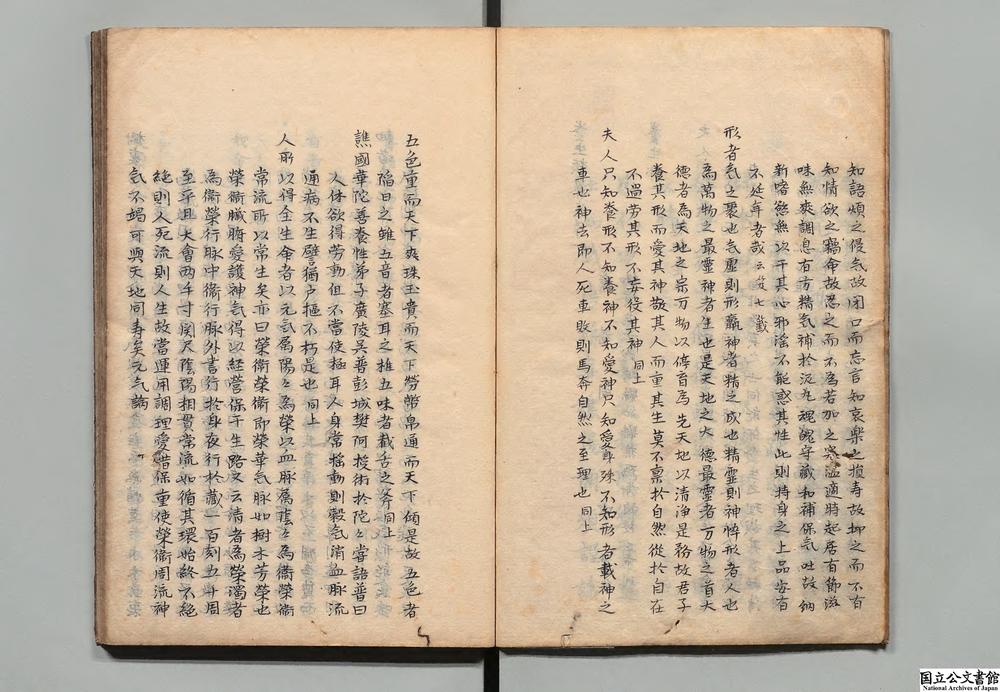 知語煩之侵氣故閉口而忘言知哀樂之損寿故抑之而不有
知情欲之竊命故忍之而不為若加之寒温適時起居有節滋
味無爽調息有方精氣補於泥丸魂魄守藏和補保氣吐故納
新嗜慾無以干其心邪淫不能惑其性此則持身之上品安有
不延年者哉 云笈七籤
形者氣之聚也氣虚則形羸神者精之成也精霊則神悴形者人也
為萬物之最霊神者生也是天地之大德最霊者万物之首大
德者為天地之宗万物以停育為先天地以清浄是務故君子
養其形而愛其神敬其人而重其生莫不禀於自然從於自在
不過劳其形不妄役其神 同上
夫人只知養形不知養神不知愛神只知愛身殊不知形者載神之
車也神去即人死車敗則馬奔自然之至理也 同上
五色重而天下爽珠玉貴而天下劳幣帛通而天下傾是故五色者
陷目之錐五音者塞耳之椎五味者截舌之斧 同上
譙國華陀善養性弟子廣陵呉普彭城樊阿授術於陀々嘗語普曰
人体欲得劳動但不當使極耳人身常揺動則穀氣消血脉流
通病不生譬猶户樞不朽是也 同上
人所以得全生命者以元氣属陽々為榮以血脉属陰々為衛榮衛
常流所以常生矣亦曰榮衛榮衛即榮華氣脉如樹木芳榮也
榮衛臓腑愛護神氣得以経営保于生路又云清者為榮濁者
為衛榮行脉中衛行脉外晝行於身夜行於藏一百刻五十周
至平旦大會両手寸関尺陰陽相貫常流如循其環始終不絶
絶則人死流則人生故當運用調理愛惜保重使榮衛周流神
氣不竭可與天地同寿矣元氣論
国立公文書館
National Archives of Japan